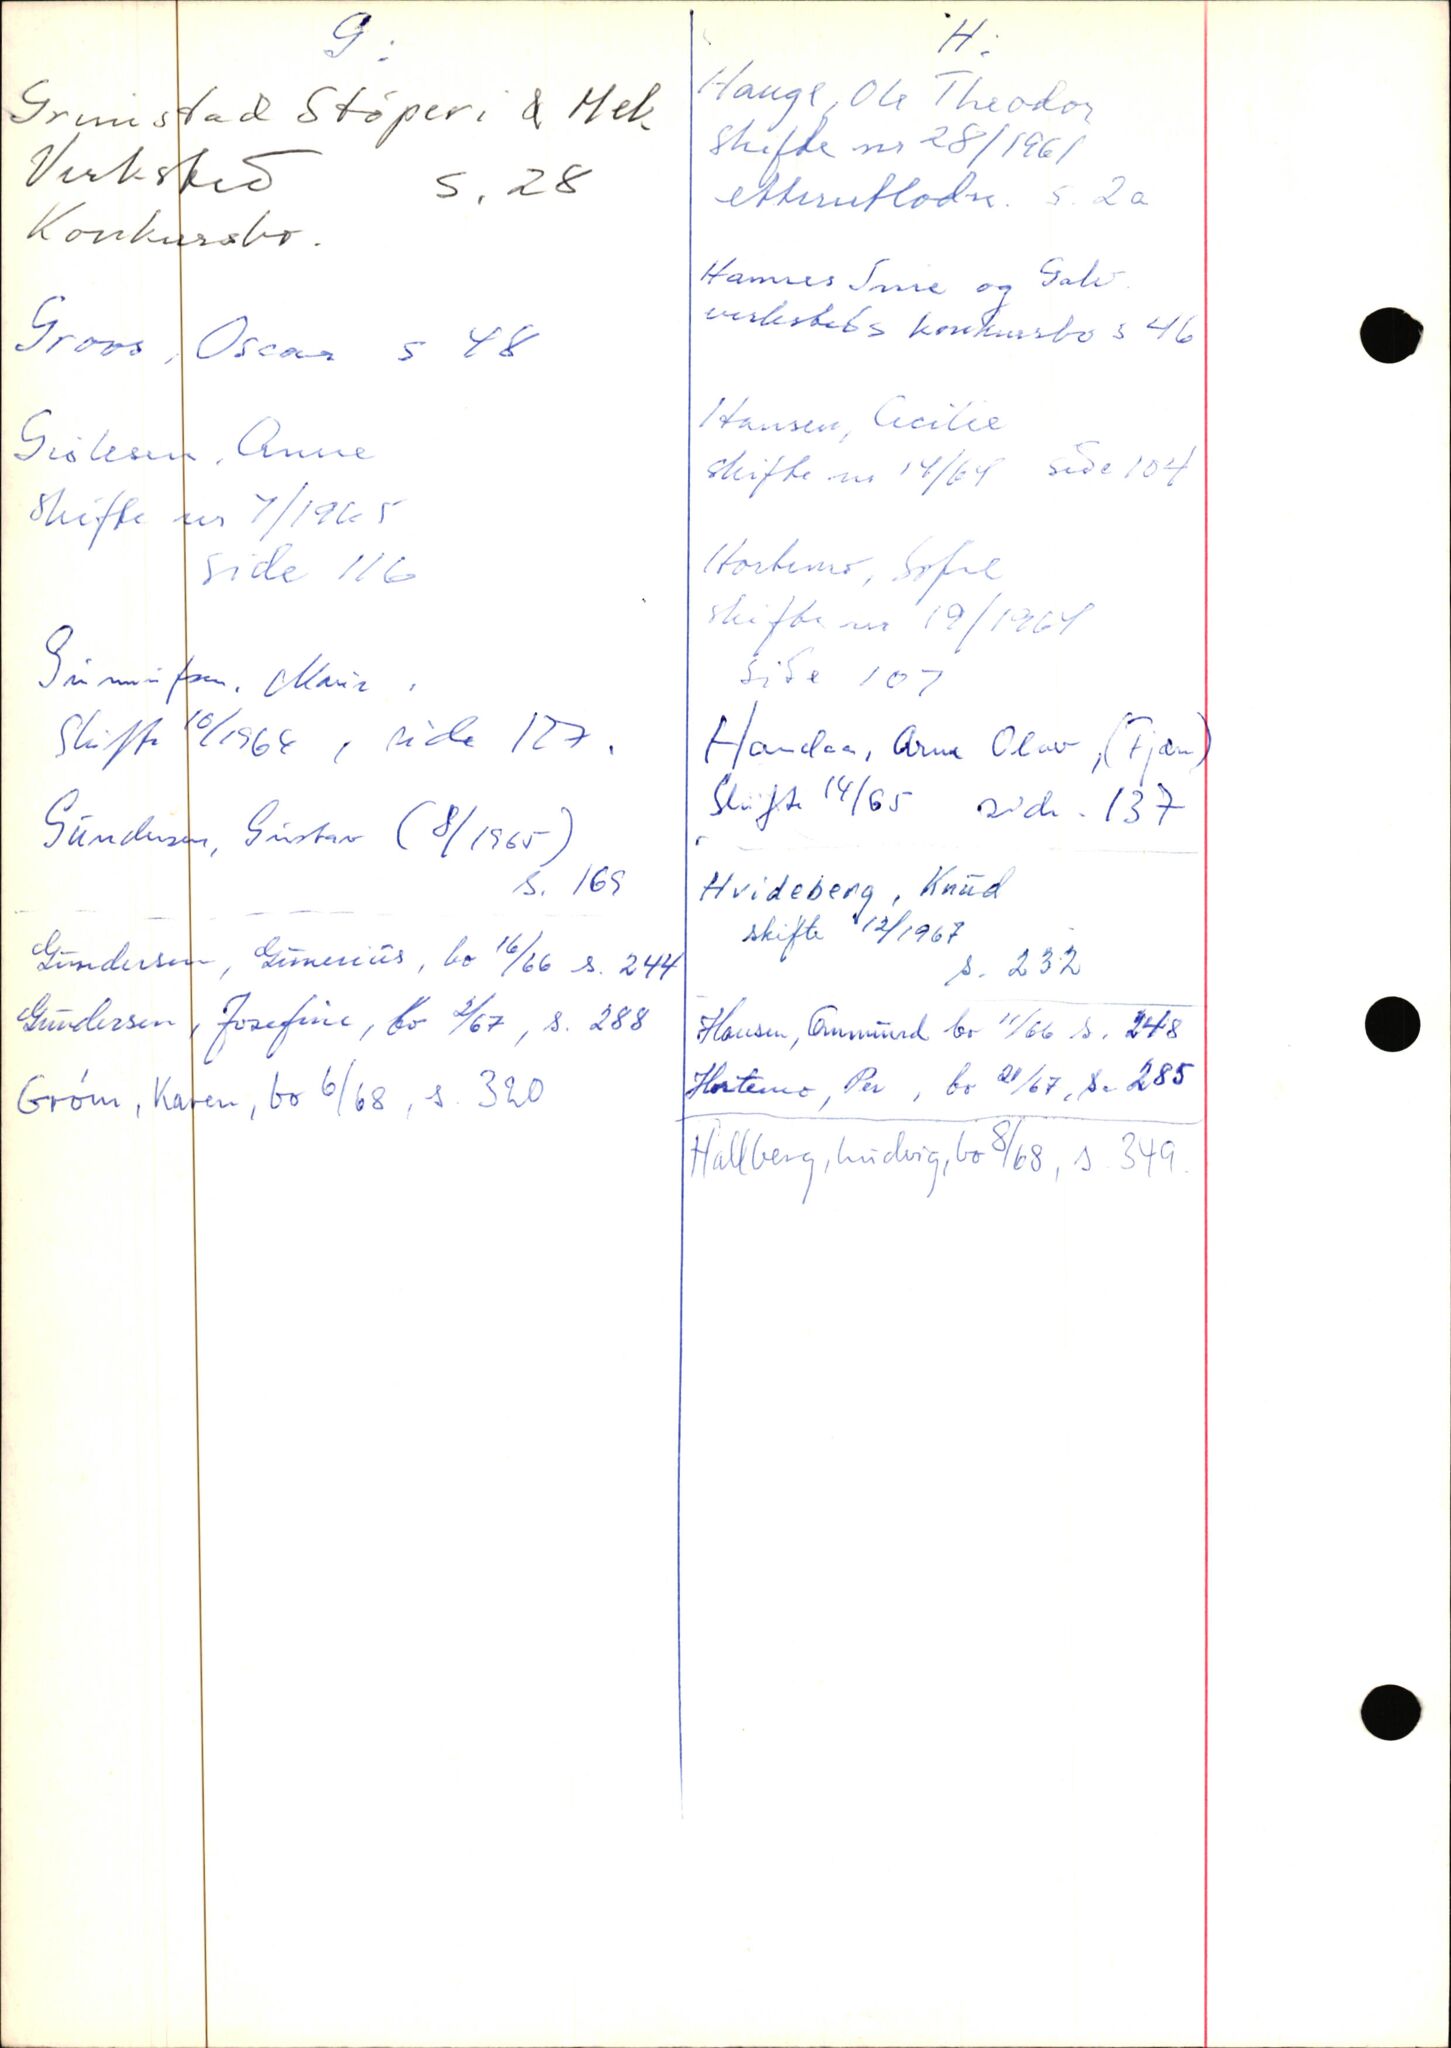 G:
Grimstad Støperi & Mek
Verksted s. 28
Konkursbo.
Groos, Oscar s 48
Anne
Skifte nr 7/1965
side 116
Marie.
Skifte 10/1964, side 127.
Gundersen, Gustav (8/1965)
s. 169
Gundersen, Gunerius, bo 16/66 s. 244
Gundersen, Josefine, bo 2/67, s. 288
Grøm, Karen, bo 6/68, s. 320
H:
Hauge, Ole Theodor
Skifte nr 28/1961
etterutlodn. s. 2a
Hamres Smie og Galv.
verksteds konkursbo s 46
Hansen, Cecilie
Skifte nr 14/64 side 104
Hortemo, Sofie
Skifte nr 19/1964
side 107
Arne Olav, (Fjære)
Skifte 14/65 side. 137
Hvideberg, Knud
skifte 12/1967
s. 232
Hansen, Ommund bo 11/66 s. 248
Hortemo, Per, bo 21/67, s. 285
Hallberg, Ludvig, bo 8/68, s. 349.